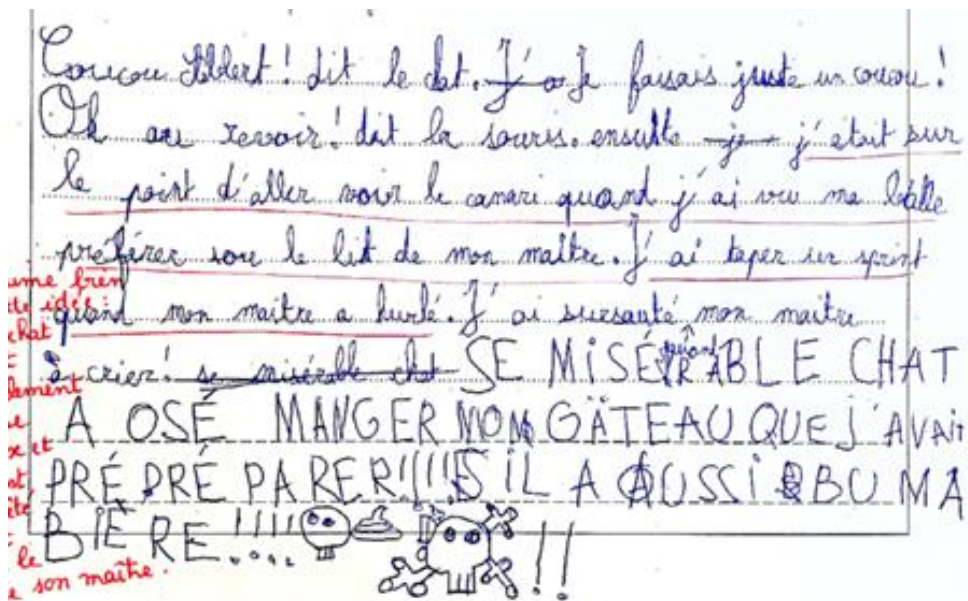 Coucou Albert ! dit le chat. J'a Je faisais juste un coucou !
Ok au revoir ! dit la souris. ensuite je j'etait sur
le point d'aller voir le canari quand j'ai vu ma balle
préférer sur le lit de mon maître. J'ai taper un sprint
quand mon maitre a hurlé. J'ai sursauté quand mon maitre
a crier ! se misérable chat SE MISÉRABLE CHAT
A OSÉ MANGER MON GÂTEAU QUE J'AVAIT
PRÉ PRÉ PARER !!!! S IL A AUSSI BU MA
BIÈRE !!!! !!
une
idée :
chat
et
le
son maître.